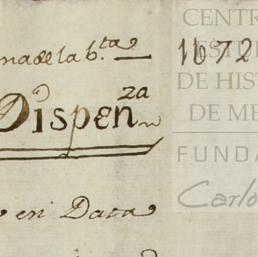 CENTR
na de la b.ta 1672
DE HIST
Dispen.za
DE ME
FUNDA
en Data
Carlo